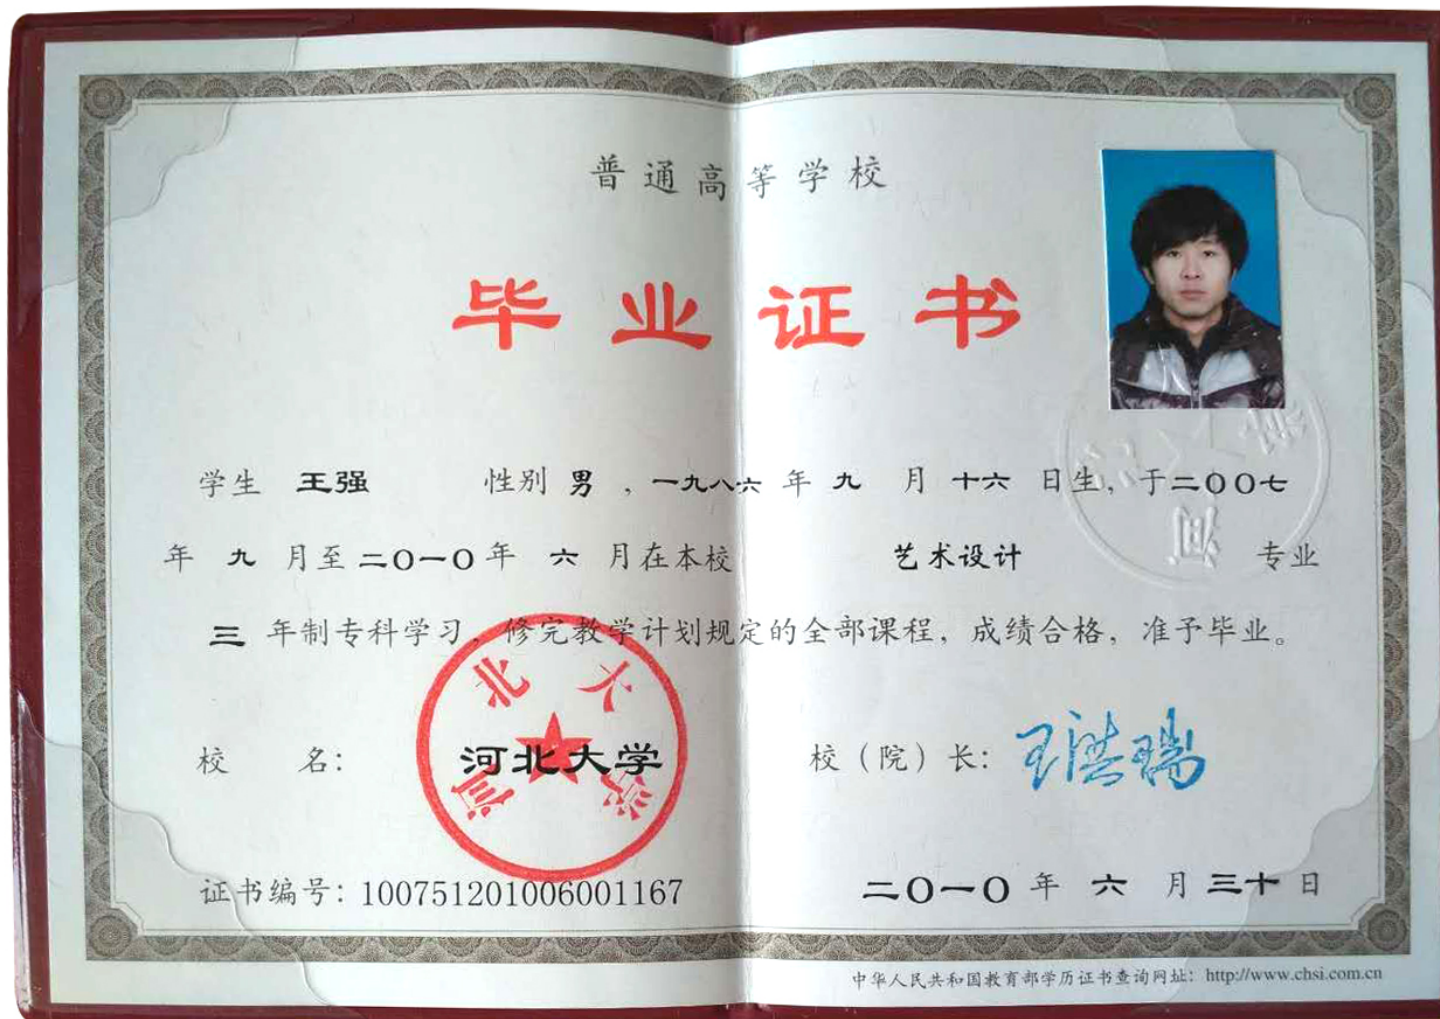 普通高等学校
毕业证书
学生 王强 性别 男 ，一九八六 年 九 月 十六 日生，于二〇〇七
年 九 月至 二〇一〇 年 六 月在本校 艺术设计 专业
三 年制专科学习，修完教学计划规定的全部课程，成绩合格，准予毕业。
河北大学
校 名： 河北大学 校（院）长： 王洪瑞
证书编号：100751201006001167 二〇一〇 年 六 月 三十 日
中华人民共和国教育部学历证书查询网址：http://www.chsi.com.cn